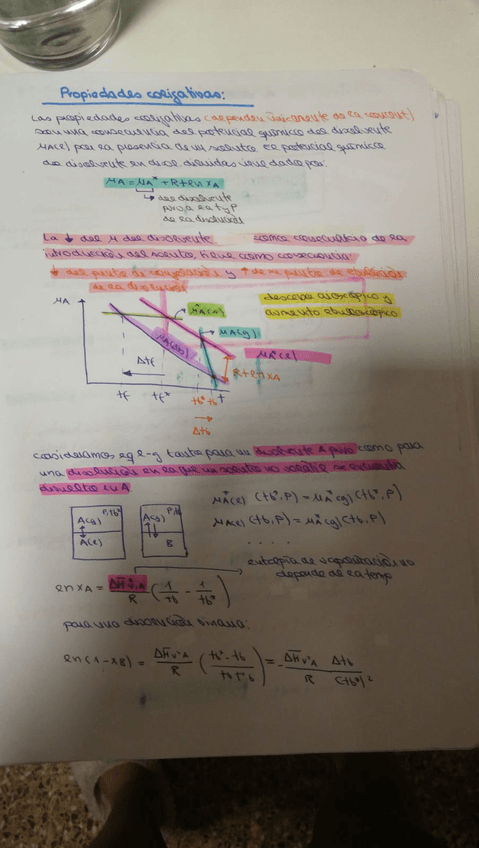 Propiedades coligativas:
Las propiedades coligativas (dependen únicamente de la concent)
son una consecuencia del potencial químico del disolvente
μA(l) por la presencia de un soluto. El potencial químico
de disolvente en disol diluidas viene dado por:
μA = μA* + RT ln xA
↳ del disolvente
puro a la T y P
de la disolución
La ↓ del μ del disolvente como consecuencia de la
introducción del soluto, tiene como consecuencia:
↓ del punto de congelación y ↑ de su punto de ebullición
de la disolución
descenso crioscópico y
aumento ebulloscópico
μA
μA(s)
μA(g)
μA(l)
μA*(l)
RT ln xA
ΔTf
Tf Tf* Tb* Tb T
ΔTb
Consideramos eq l-g tanto para un disolvente A puro como para
una disolución en la que un soluto no volátil se encuentra
disuelto en A
A(g) P,Tb*
A(l)
A(g) P,Tb
B
μA*(l) (Tb*,P) = μA*(g) (Tb*,P)
μA(l) (Tb,P) = μA*(g) (Tb,P)
. . . .
entalpía de vaporización no
depende de la temp
ln xA = ΔH̄v,A / R (1/Tb - 1/Tb*)
para una disolución binaria:
ln(1-xB) = ΔH̄v,A / R (Tb* - Tb / Tb T*b) = - ΔH̄v,A / R ΔTb / (Tb*)²